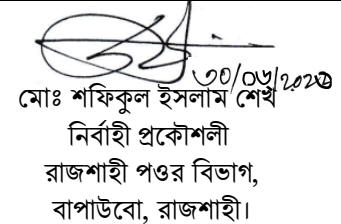 ৩০/০৬/২০২
মোঃ শফিকুল ইসলাম শেখ
নির্বাহী প্রকৌশলী
রাজশাহী পওর বিভাগ,
বাপাউবো, রাজশাহী।